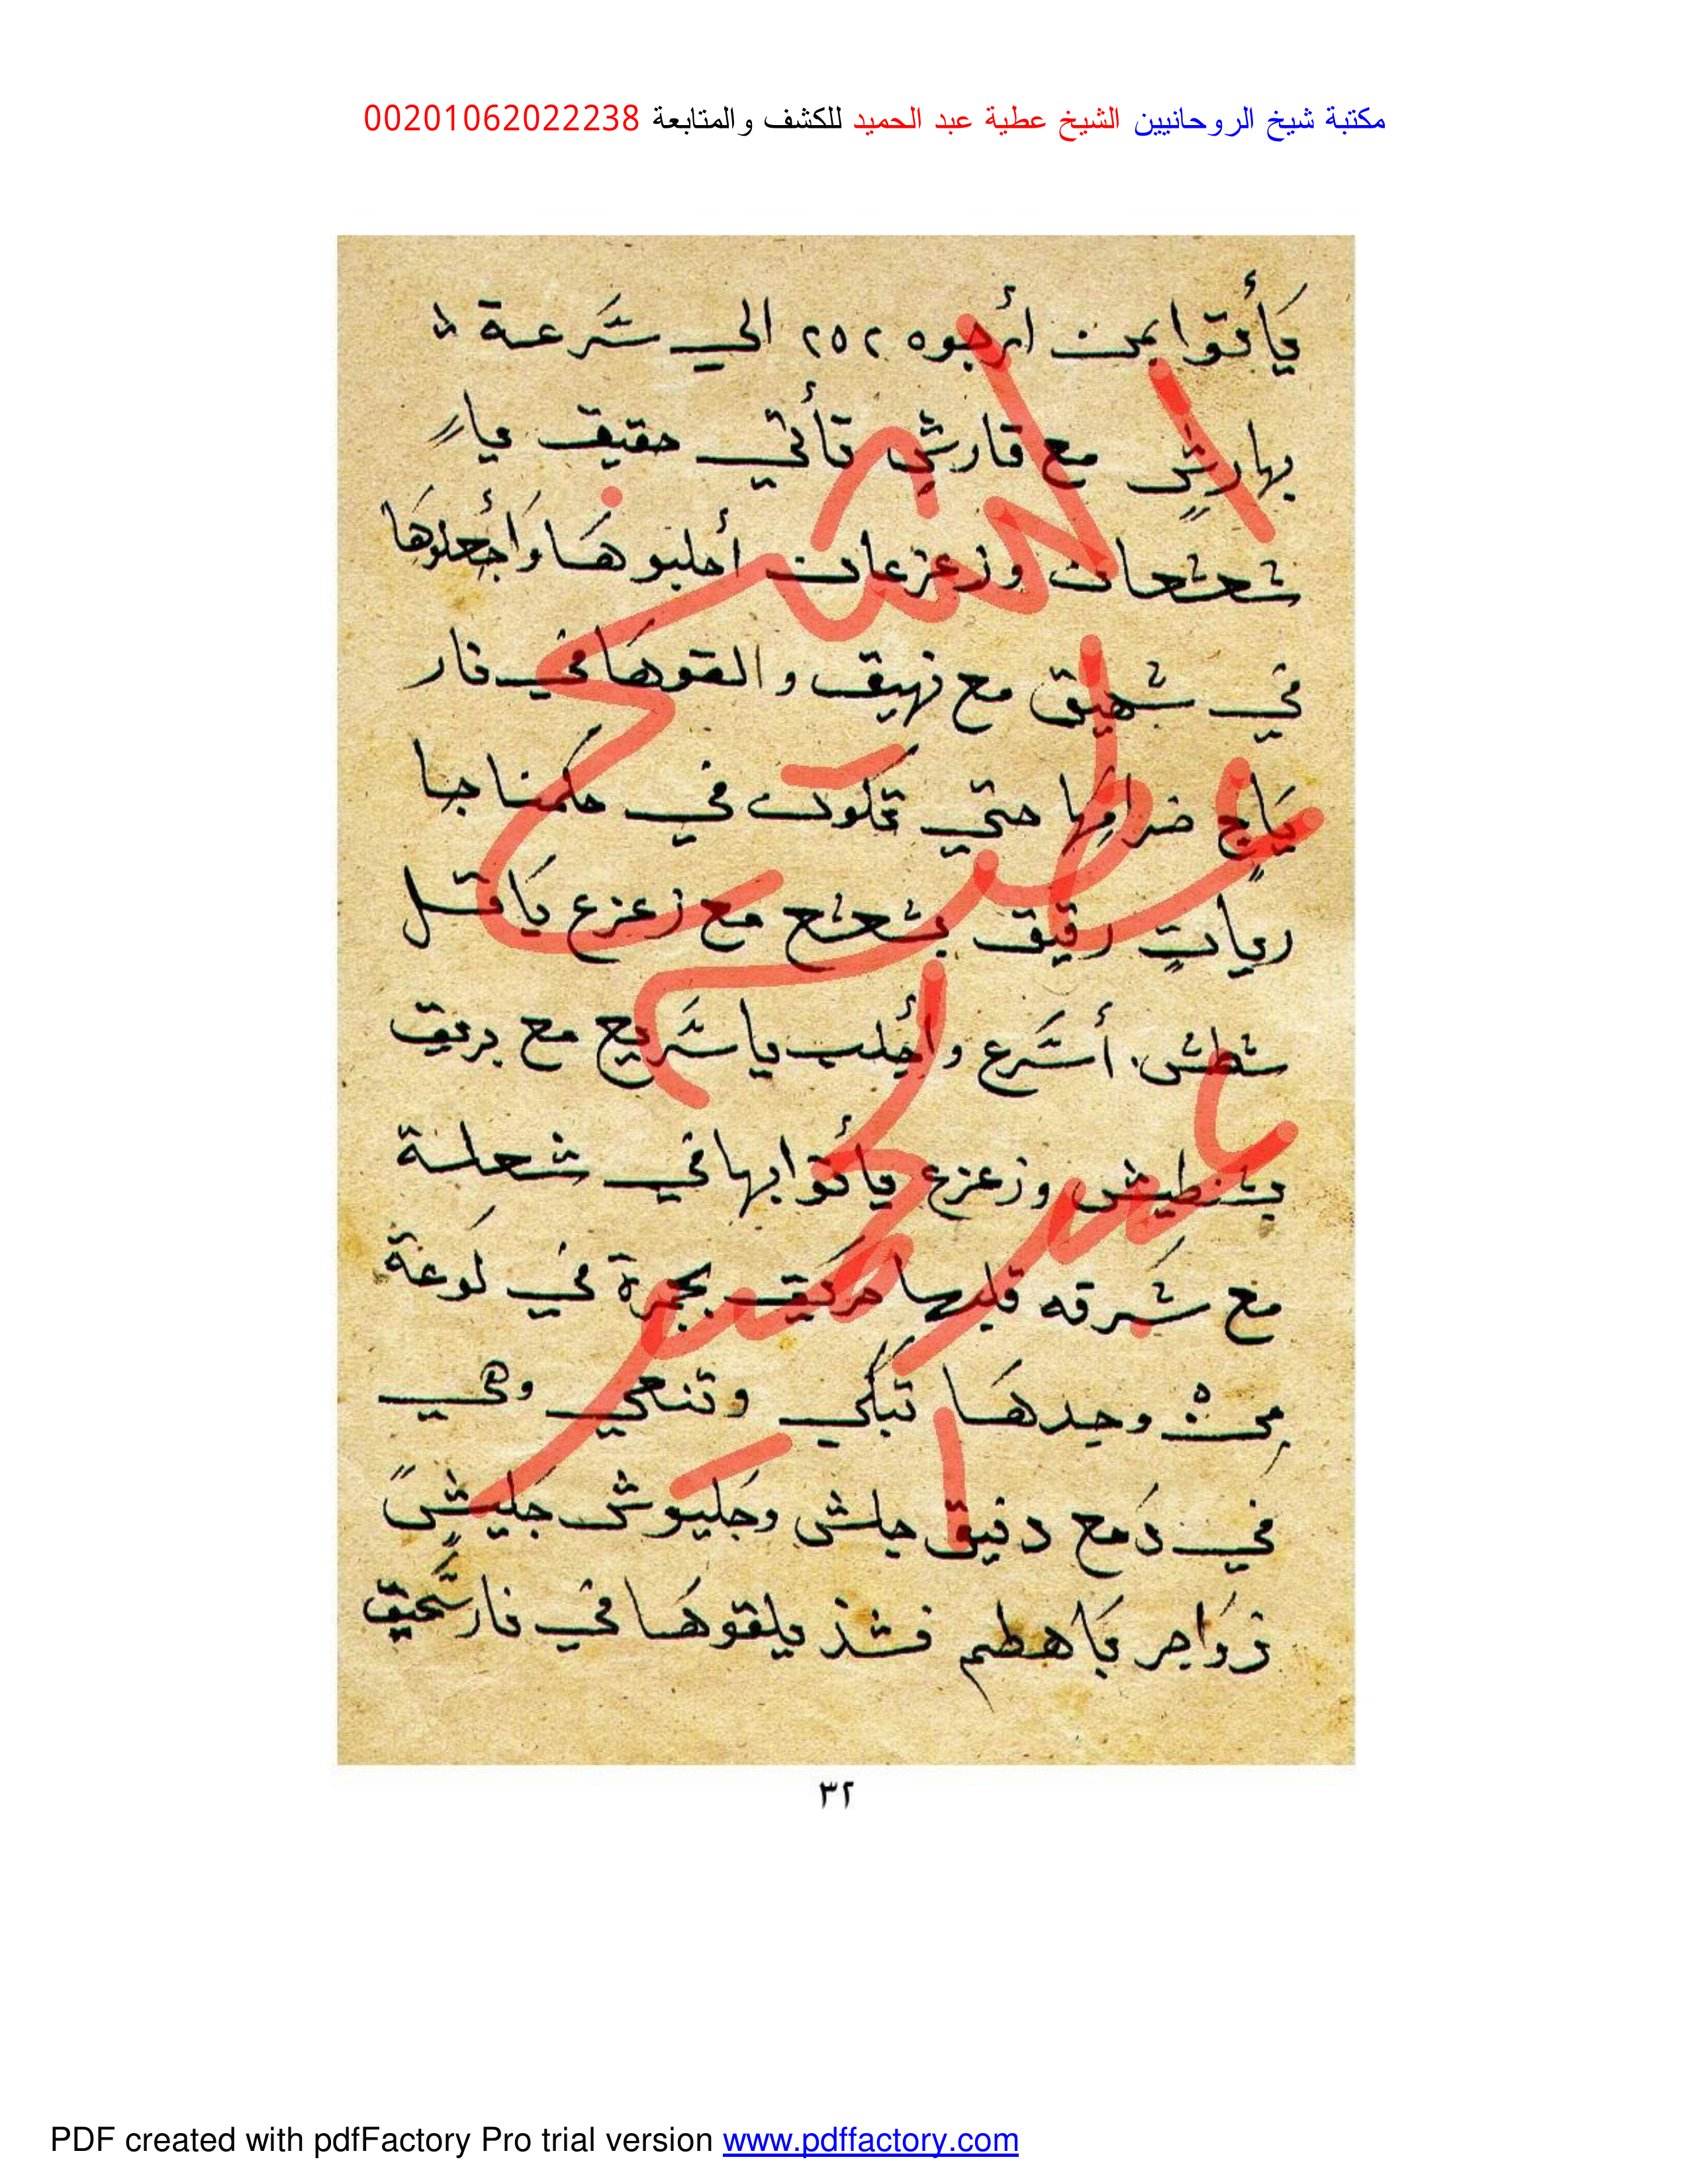 مكتبة شيخ الروحانيين الشيخ عطية عبد الحميد للكشف والمتابعة 00201062022238
يَأتوا بمن أرجوه ٢٥٢ الي سَّرعة
بهارشٍ مع قارشٍ تأتي حقيق يار
شحثحات وزعزعات أجلبوهَا وَأجعلوهَا
في شهيق مع نهيق والقوهَا في نار
يَاجٍ ضرامِها حتي تكون في حكمنا جا
رياتٍ رقيق بشحثح مع زعزع يَا قل
شطش أسَّرع وأجلب يا سَّريع مع بريق
بشطيش وزعزع يأتوا بها في شعلة
مع شَرقه قلبها حركيق بجمرة في لَوعة
مِنْ وجدهَا تَبكي وتنحي وهي
في دَمع دنيق جلش وجَليوش جَليشٍ
زوَاجر يَاهطم فشذ يلقوهَا في نار سَّحيق
الشيخ
عطية
عبد
الحميد
٣٢
PDF created with pdfFactory Pro trial version www.pdffactory.com